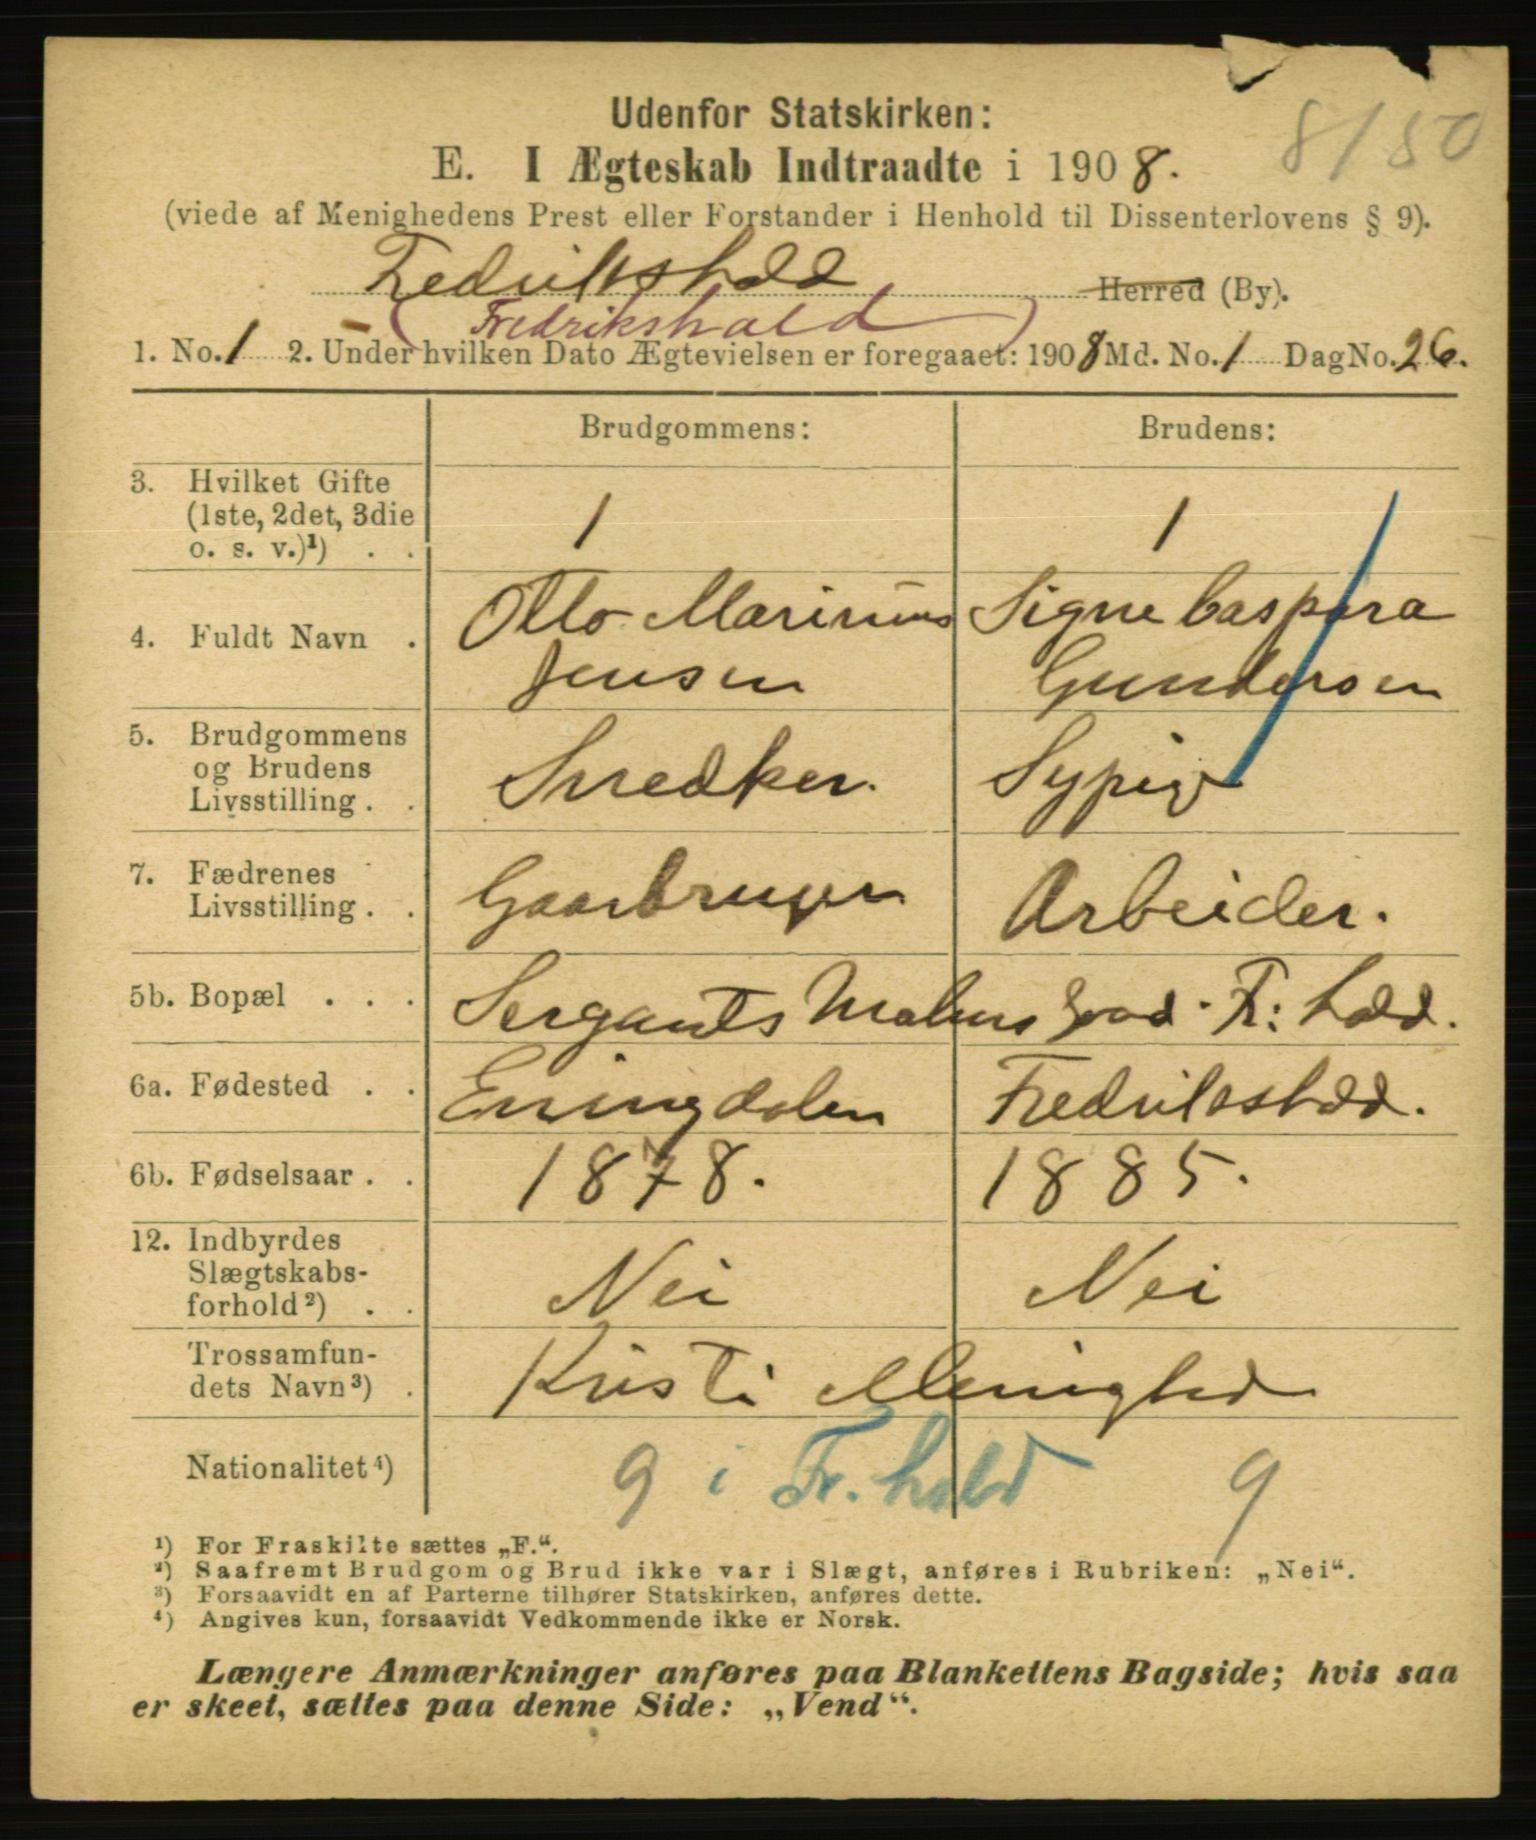 8/50
Udenfor Statskirken:
E. I Ægteskab Indtraadte i 1908.
(viede af Menighedens Prest eller Forstander i Henhold til Dissenterlovens § 9).
Fredrikshald Herred (By).
(Fredrikshald)
1. No. 1 2. Under hvilken Dato Ægtevielsen er foregaaet: 1908 Md. No. 1 Dag No. 26.
Brudgommens: Brudens:
3. Hvilket Gifte
(1ste, 2det, 3die
o. s. v.)¹) . . 1 1
4. Fuldt Navn . Otto Marinius Signe Caspara
Jensen Gundersen
5. Brudgommens
og Brudens
Livsstilling . . Snedker. Sypige
7. Fædrenes
Livsstilling . . Gaarbruger Arbeider.
5b. Bopæl . . . Sergants Gaad. Fr: hald.
6a. Fødested . . Enningdalen Fredrikshald.
6b. Fødselsaar . . 1878. 1885.
12. Indbyrdes
Slægtskabs-
forhold²) . . Nei Nei
Trossamfun-
dets Navn³) . Kristi Menighed
Nationalitet⁴) 9 i Fr. hald 9
¹) For Fraskilte sættes „F.“.
²) Saafremt Brudgom og Brud ikke var i Slægt, anføres i Rubriken: „Nei“.
³) Forsaavidt en af Parterne tilhører Statskirken, anføres dette.
⁴) Angives kun, forsaavidt Vedkommende ikke er Norsk.
Længere Anmærkninger anføres paa Blankettens Bagside; hvis saa
er skeet, sættes paa denne Side: „Vend“.